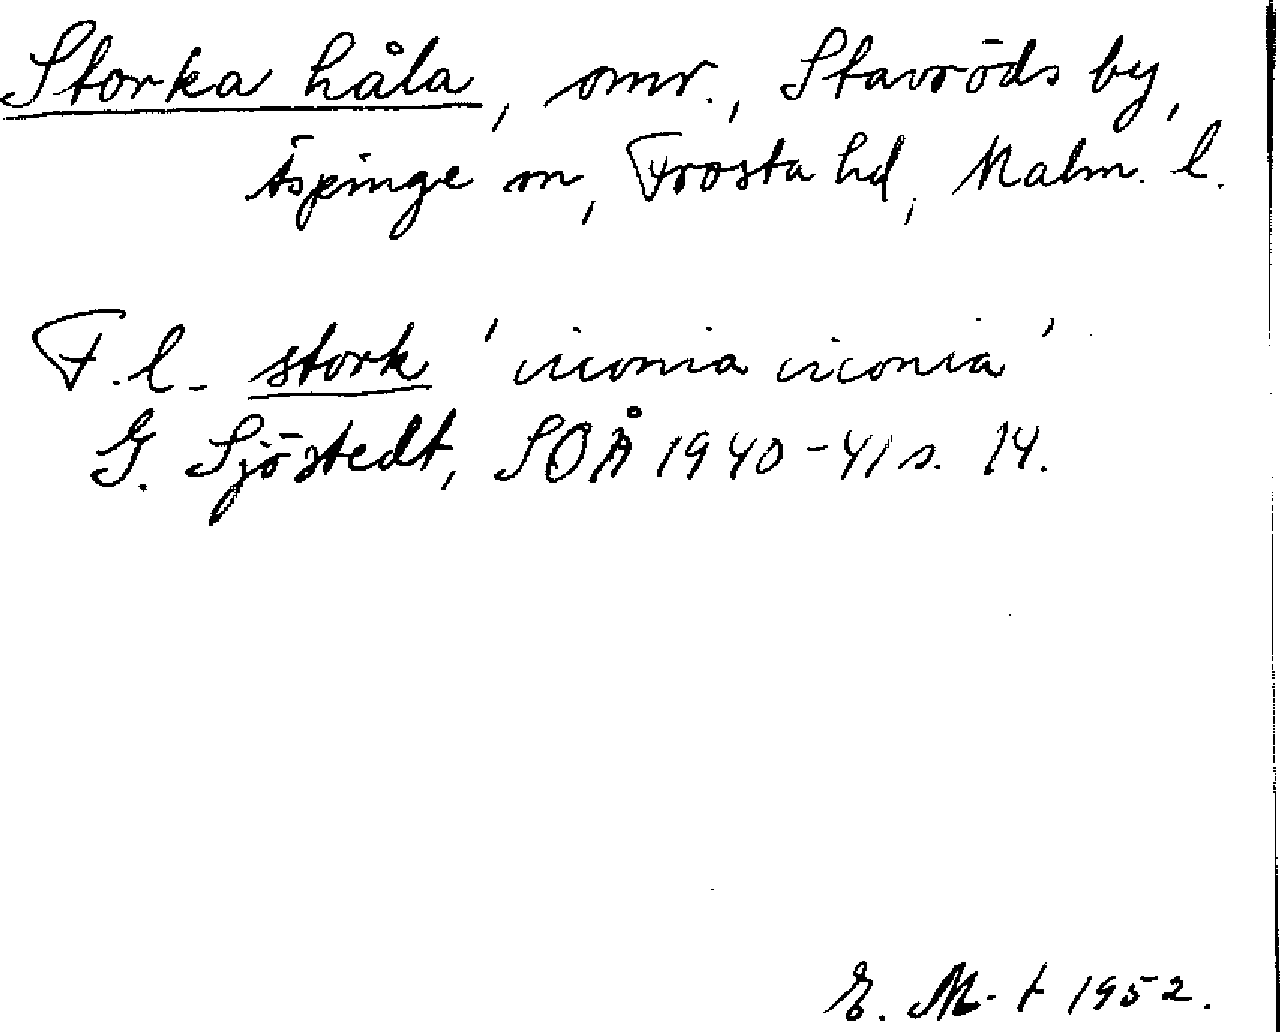 Storka håla, omr., Stavröds by,
Äspinge sn, Frosta hd, Malm. l.
F. l. stork 'ciconia ciconia'
G. Sjöstedt, SOÅ 1940-41 s. 14.
E. M-t 1952.